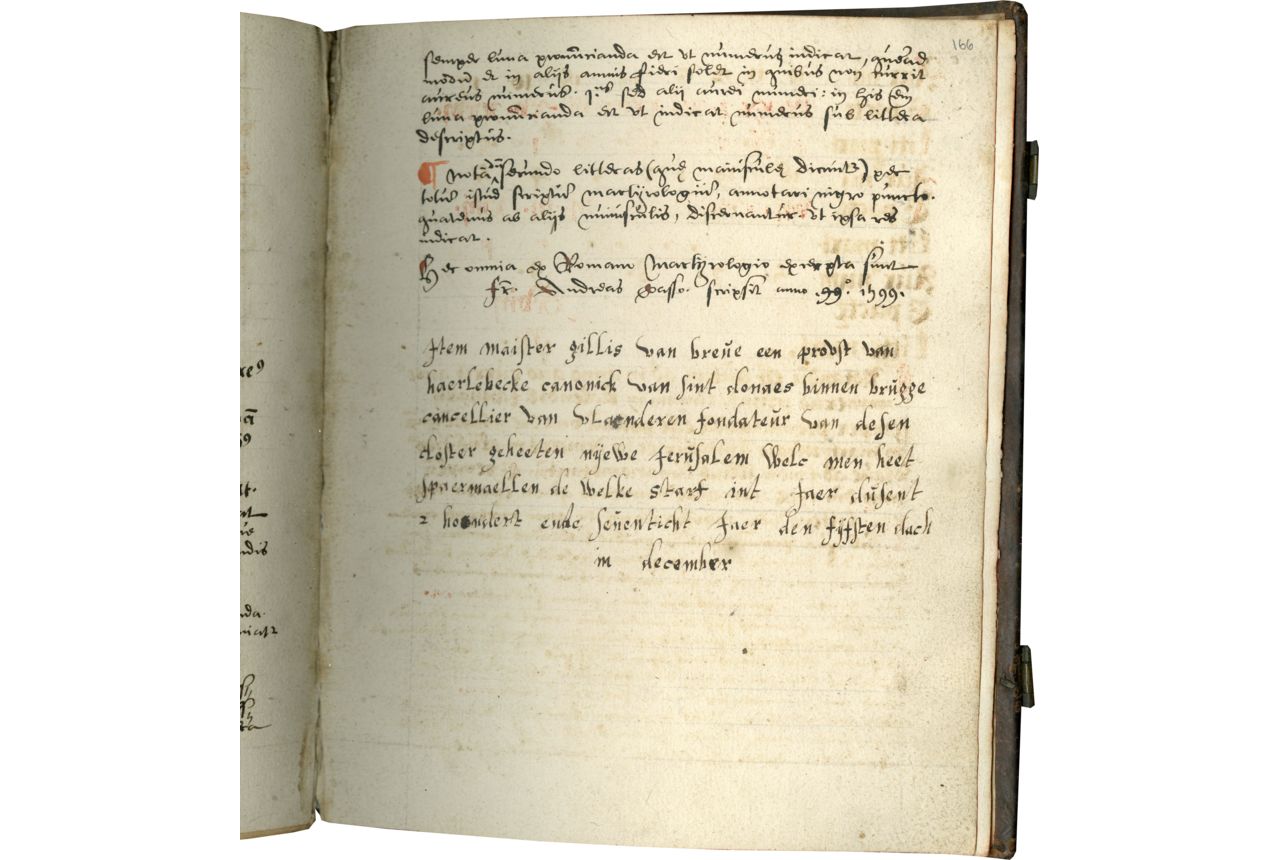 166
semper luna pronūcianda est ut numerus indicat, quēad
modū et in alijs annis fieri solet in quibus non currit
aureus numerus. 19us sed alij aurei numeri: in his em̄
luna pronūncianda est ut indicat numerus sub littera
descriptus.
¶ nota secundo litteras (quę maiusculę dicuntr) per
totū istud scriptū martyrologiū, annotari nigro puncto.
quatenus ab alijs minusculis, discernantur. ut ipsa res
indicat.
Hec omnia ex Romano Martyrologio excerpta sunt
fr. Andreas scripsit anno .99°. 1599.
Item maister gillis van breue een provst van
haerlebecke canonick van sint donaes binnen brugge
cancellier van vlaenderen fondateur van desen
closter geheeten nyewe Jerusalem welc men heet
spaermaellen de welke starf int Jaer dusent
2 hondert ende seuenticht Jaer den fyfsten dach
in december